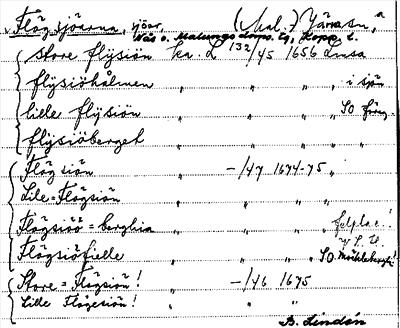 Flögsjöarna, sjöar, (Mal.) Järna sn,
Nås o. Malungs doms. tg, Kopp. l.
Store flÿsiön ka. L 132/45 1656 Lusa
flÿsiöhålmen " " " " i sjön
lille flÿsiön " " " " SO
flÿsiöberget " " " "
Flög siön " -/47 1674-75 "
Lile=Flögsiön " " " "
Flögsiöö=berghia " " " " felplac.!
Flögsiöfielle " " " " SO
Store=Flögsiön! " -/46 1675
Lille Flögesiön! " " "
B. Lindén